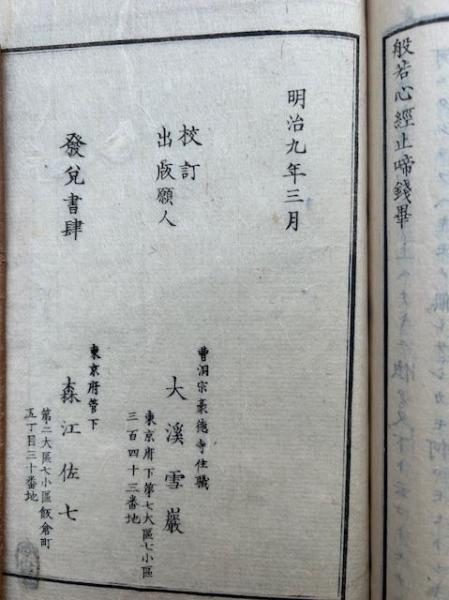 般若心經止啼錢畢
明治九年三月
校訂
出版願人
曹洞宗豪德寺住職
大溪雪巖
東京府下第七大區七小區
三百四十三番地
發兌書肆
東京府管下
森江佐七
第二大區七小區飯倉町
五丁目三十番地